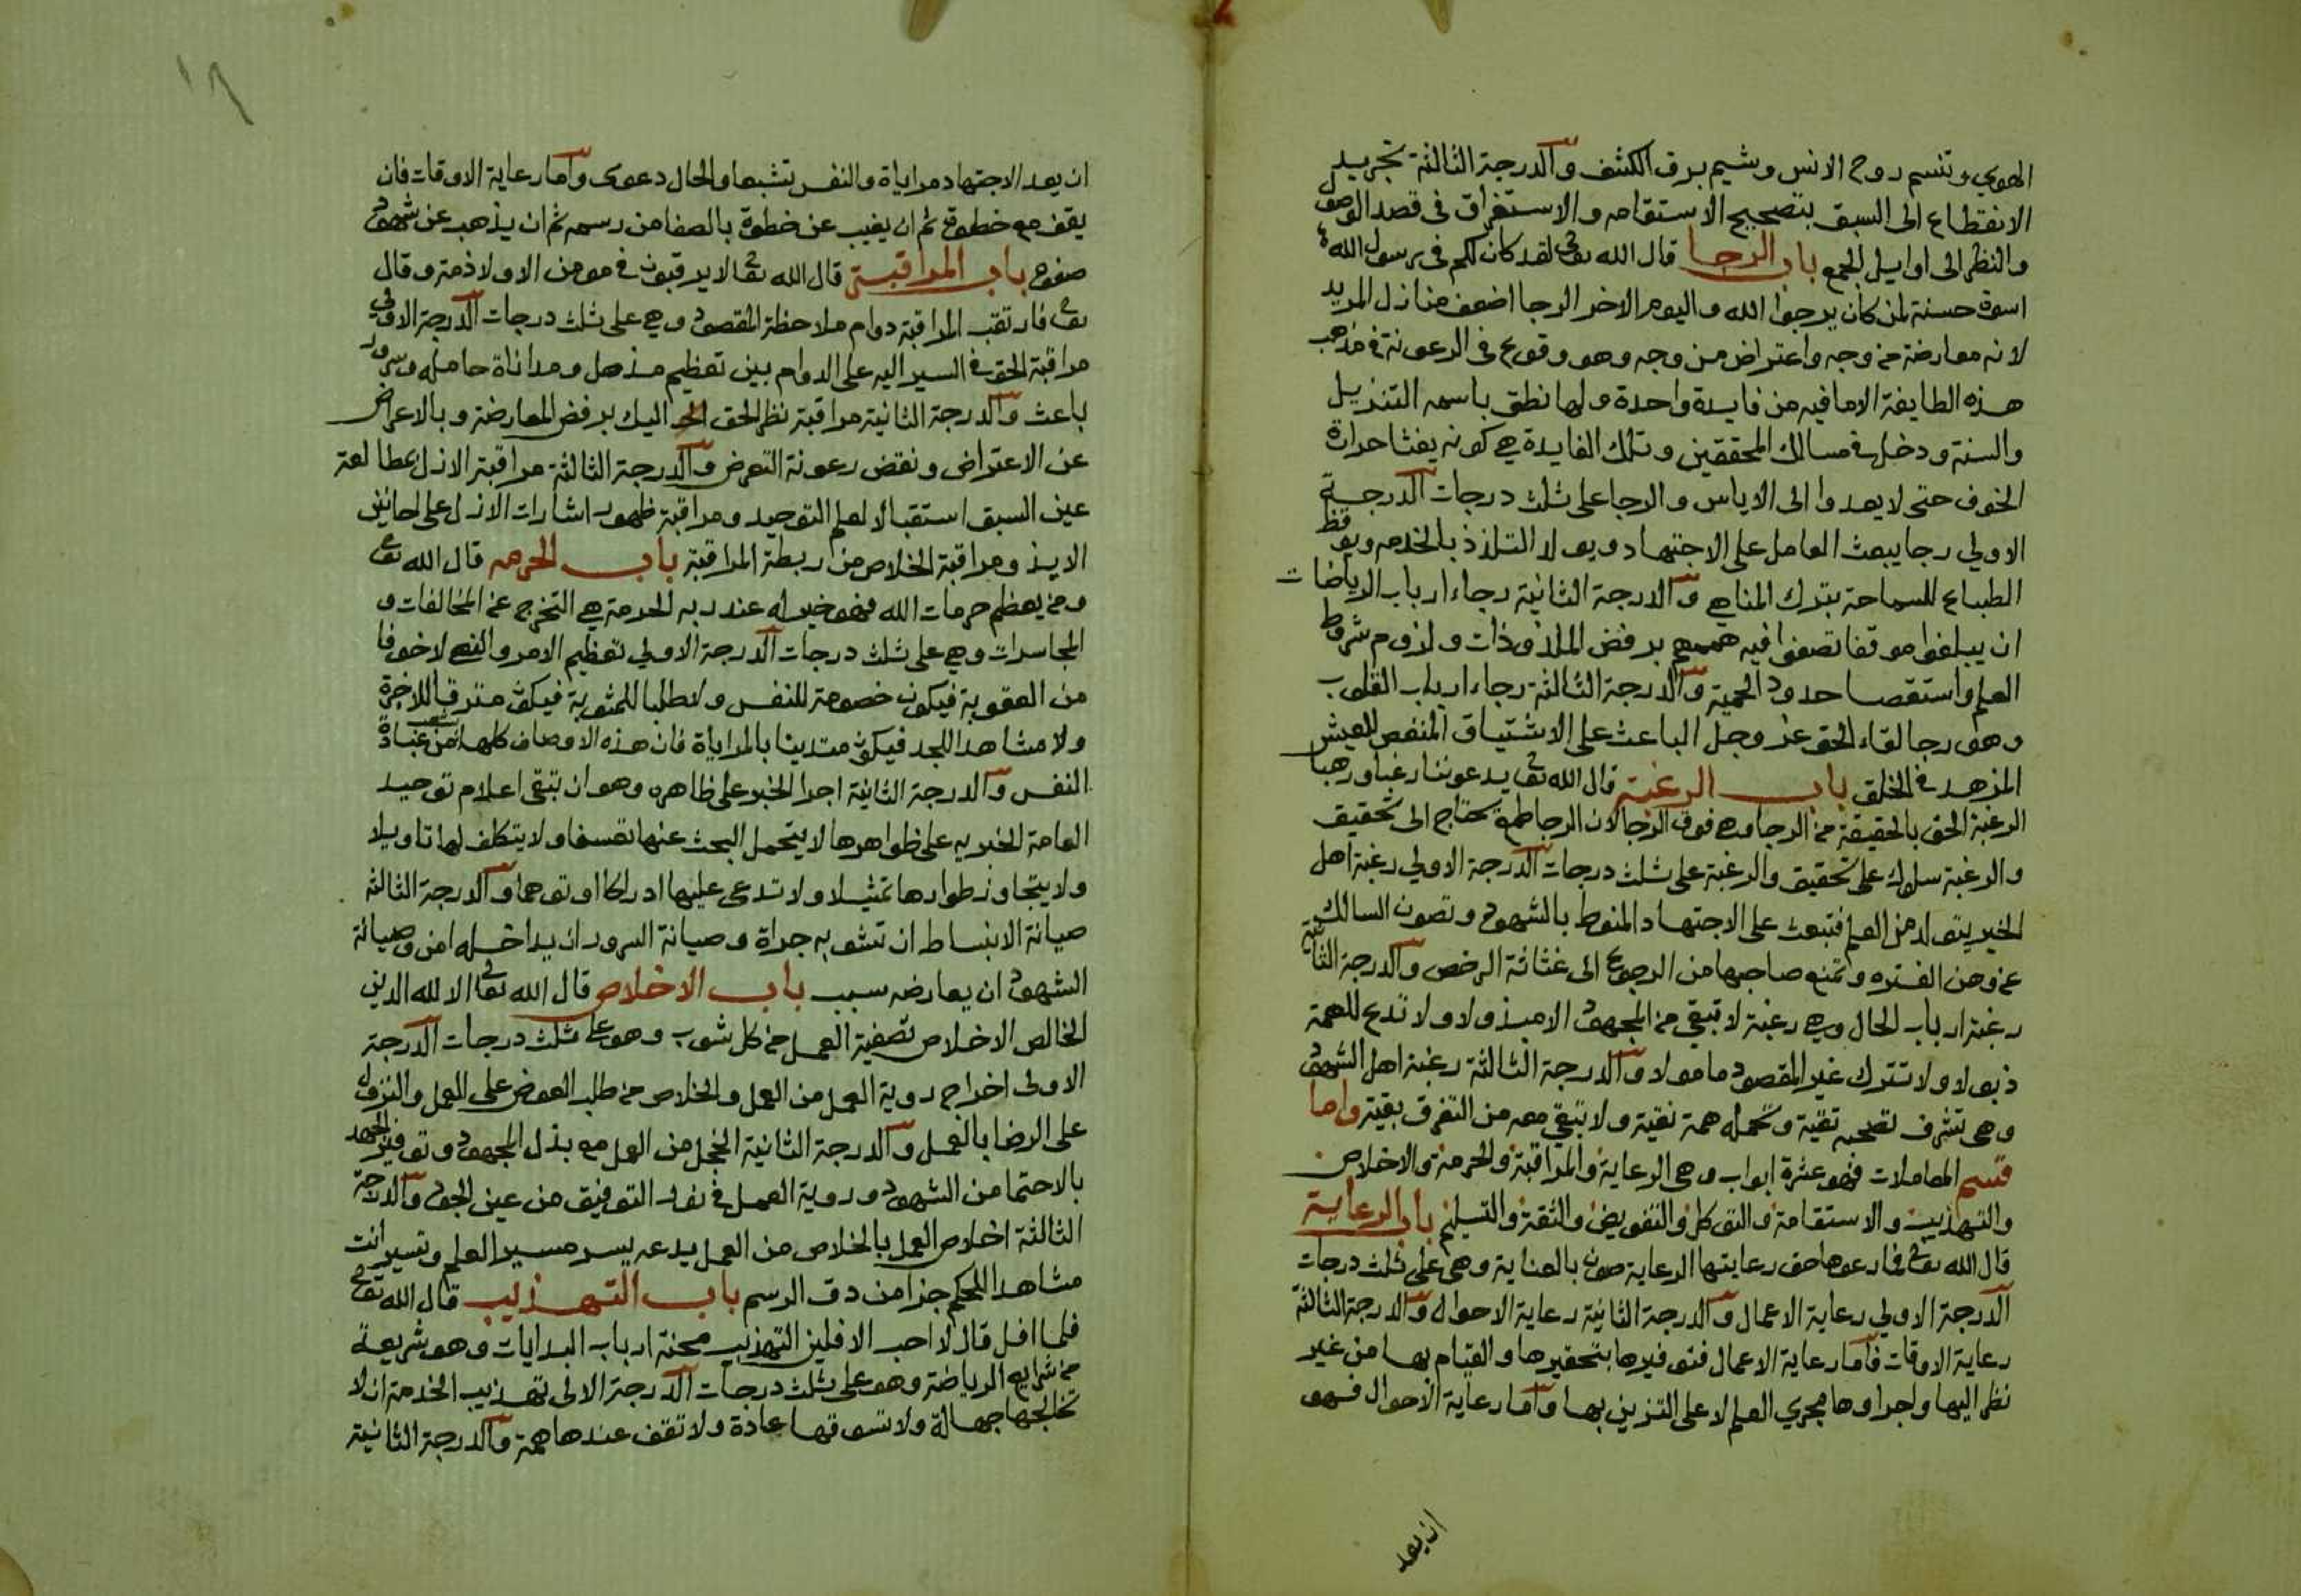 الهوي وتنسم روح الانس وشيم برق الكشف والدرجة الثالثة تجريد
الانقطاع الى السبق بتصحيح الاستقامه والاستغراق فى قصد الوصول
والنظر الى اوايل الجمع باب الرجا قال الله تعالى لقد كان لكم فى رسول الله
اسوة حسنة لمن كان يرجوا الله واليوم الاخر الرجا اضعف منازل المريد
لانه معارضة من وجه واعتراض من وجه وهو وقوع فى الرعونة فى مذهب
هذه الطايفة الا ما فيه من فايدة واحدة ولها نطق باسمه التنزيل
والسنة ودخل فى مسالك المحققين وتلك الفايدة هي كونه يفثا حرارة
الخوف حتى لا يعدوا الى الاياس والرجا على ثلث درجات الدرجة
الاولي رجا يبعث العامل على الاجتهاد ويولد التلذذ بالخدمه ويوقظ
الطباع للسماحة بترك المناهي والدرجة الثانية رجاء ارباب الرياضات
ان يبلغوا موقفا تصفوا فيه هممهم برفض الملذوذات ولزوم شروط
العلم واستقصا حدود الحمية والدرجة الثالثة رجاء ارباب القلوب
وهو رجا لقاء الحق عز وجل الباعث على الاشتياق المنغص للعيش
المزهد فى الخلق باب الرغبة قال الله تعالى يدعوننا رغبا ورهبا
الرغبة الحق بالحقيقة من الرجا وهي فوق الرجا لان الرجا طمع يحتاج الى تحقيق
والرغبة سلوك على تحقيق والرغبة على ثلث درجات الدرجة الاولي رغبة اهل
الخبر يتولد من العلم فتبعث على الاجتهاد المنوط بالشهود وتصون السالك
عن وهن الفتره وتمنع صاحبها من الرجوع الى غثاثة الرخص والدرجة الثانية
رغبة ارباب الحال وهي رغبة لا تبقي من المجهود الا مبذولا ولا تدع للهمة
ذبولا ولا تترك غير المقصود مامولا والدرجة الثالثة رغبة اهل الشهود
وهى تشرف تصحبه تقية وتحمله همة نقية ولا تبقي معه من التفرق بقية واما
قسم المعاملات فهو عشرة ابواب وهى الرعاية والمراقبة والحرمة والاخلاص
والتهذيب والاستقامة والتوكل والتفويض والثقة والتسليم باب الرعاية
قال الله تعالى فما رعوها حق رعايتها الرعاية صون بالعناية وهى على ثلث درجات
الدرجة الاولي رعاية الاعمال والدرجة الثانية رعاية الاحوال والدرجة الثالثة
رعاية الاوقات فاما رعاية الاعمال فتوفيرها بتحقيرها والقيام بها من غير
نظر اليها واجراوها مجري العلم لا على التزين بها واما رعاية الاحوال فهو
ان يعد
١٨
ان يعد الاجتهاد مراياة والنفس تشبعا والحال دعوى واما رعاية الاوقات فان
يقف مع خطوة ثم ان يغيب عن خطوة بالصفا من رسمه ثم ان يذهب عن شهود
صفوه باب المراقبة قال الله تعالى لا يرقبون فى مومن الا ولا ذمة وقال
تعالى فارتقب المراقبة دوام ملاحظة المقصود وهى على ثلث درجات الدرجة الاولي
مراقبة الحق فى السير اليه على الدوام بين تعظيم مذهل ومداناة حامله وسرور
باعث والدرجة الثانية مراقبة نظر الحق اليك برفض المعارضة وبالاعراض
عن الاعتراض ونقض رعونة التعرض والدرجة الثالثة مراقبة الازل بمطالعة
عين السبق استقبالا لعلم التوحيد ومراقبة ظهور اشارات الازل على احايين
الابد ومراقبة الخلاص من ربطة المراقبة باب الحرمه قال الله تعالى
ومن يعظم حرمات الله فهو خير له عند ربه الحرمة هي التحرج عن المخالفات و
المجاسرات وهي على ثلث درجات الدرجة الاولي تعظيم الامر والنهى لا خوفا
من العقوبة فيكون خصومة للنفس ولا طلبا للمثوبة فيكون مسترقا للاجرة
ولا مشاهدا للجد فيكون متدينا بالمراياة فان هذه الاوصاف كلها شعب من عبادة
النفس والدرجة الثانية اجرا الخبر على ظاهره وهو ان تبقى اعلام توحيد
العامة الخبريه على ظواهرها لا يتحمل البحث عنها تعسفا ولا يتكلف لها تاويلا
ولا يتجاوز ظواهرها تمثيلا ولا تدعى عليها ادراكا او توهما والدرجة الثالثة
صيانة الانبساط ان تشوبه جراة وصيانة السرور ان يداخله امن وصيانة
الشهود ان يعارضه سبب باب الاخلاص قال الله تعالى الا لله الدين
الخالص الاخلاص تصفية العمل من كل شوب وهو على ثلث درجات الدرجة
الاولى اخراج روية العمل من العمل والخلاص من طلب العوض على العمل والنزول
على الرضا بالعمل والدرجة الثانية الخجل من العمل مع بذل المجهود وتوفير الجهد
بالاحتما من الشهود وروية العمل فى نور التوفيق من عين الجود والدرجة
الثالثة اخلاص العمل بالخلاص من العمل يدعه يسير مسير العلم وتسير انت
مشاهدا للحكم حرا من رق الرسم باب التهذيب قال الله تعالى
فلما افل قال لا احب الافلين التهذيب محنة ارباب البدايات وهو شريعة
من شرايع الرياضة وهو على ثلث درجات الدرجة الاولى تهذيب الخدمة ان لا
تخالجها جهالة ولا تسوقها عادة ولا تقف عندها همة والدرجة الثانية